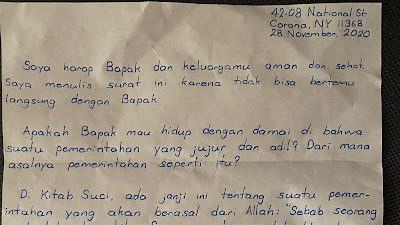 42-08 National St
Corona, NY 11368
28 November, 2020
Saya harap Bapak dan keluargamu aman dan sehat.
Saya menulis surat ini karena tidak bisa bertemu
langsung dengan Bapak.
Apakah Bapak mau hidup dengan damai di bahwa
suatu pemerintahan yang jujur dan adil? Dari mana
asalnya pemerintahan seperti itu?
Di Kitab Suci, ada janji ini tentang suatu pemer-
intahan yang akan berasal dari Allah: "Sebab seorang